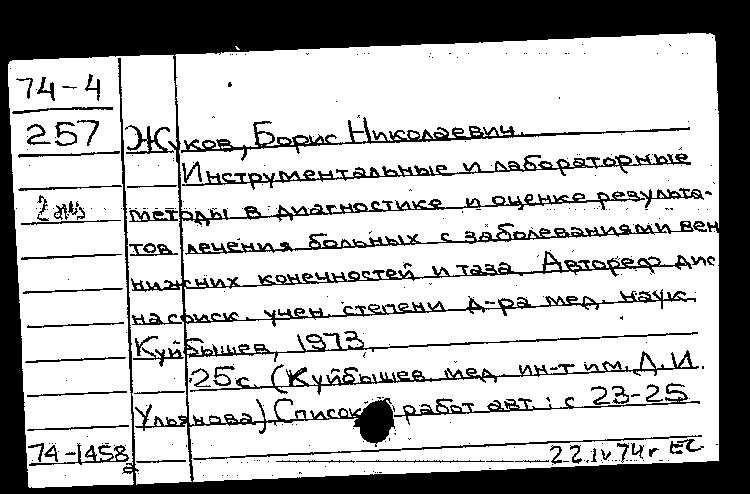 74-4
257
2 экз
Жуков, Борис Николаевич.
Инструментальные и лабораторные
методы в диагностике и оценке результа-
тов лечения больных с заболеваниями вен
нижних конечностей и таза. Автореф дис
на соиск. учен. степени д-ра мед. наук.
Куйбышев, 1973.
25 с. (Куйбышев. мед. ин-т им. Д. И.
Ульянова). Список работ авт.: с 23-25
74-1458
22.IV 74г ЕС